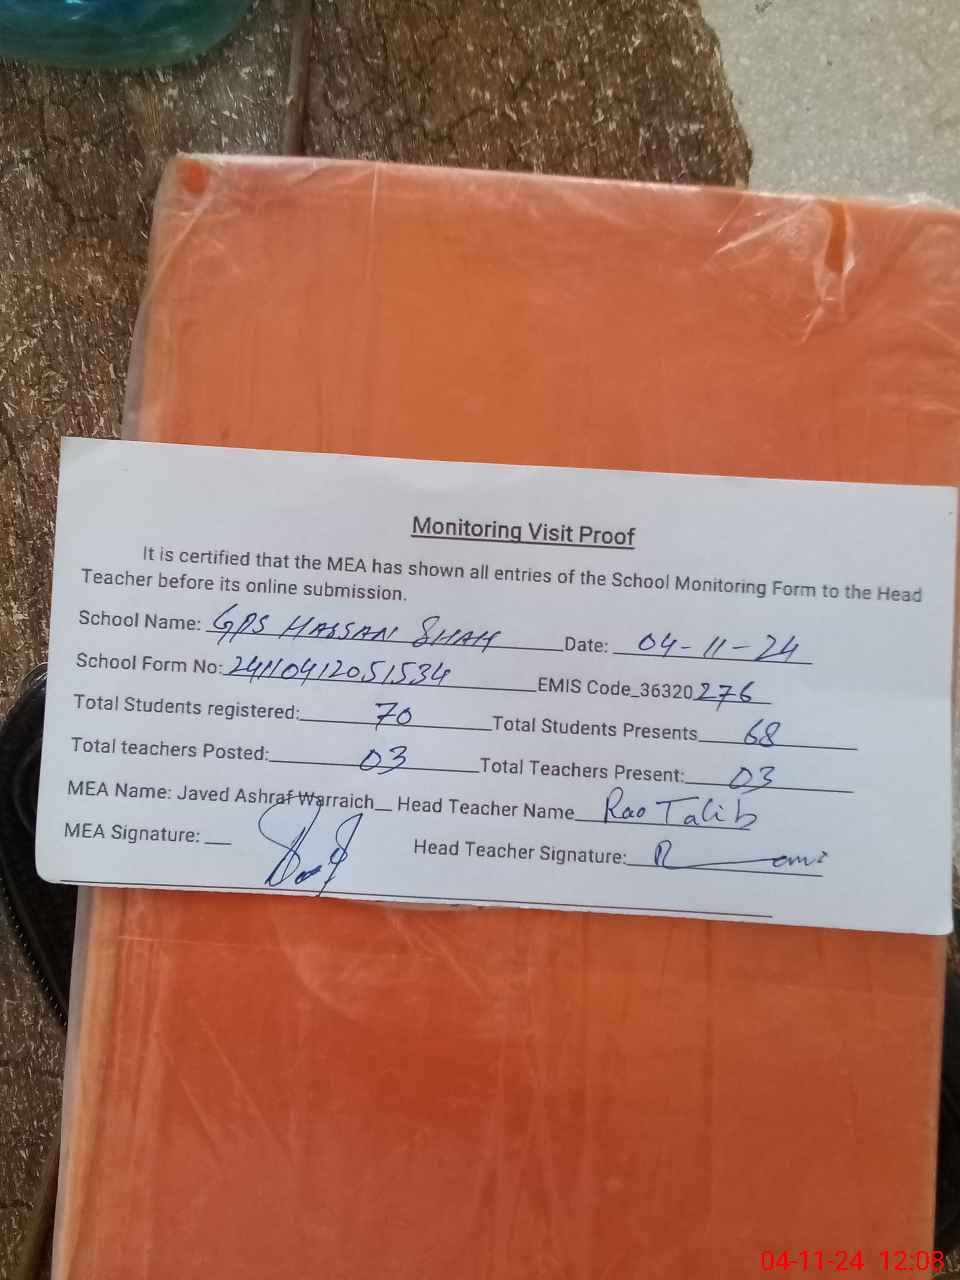 Monitoring Visit Proof
It is certified that the MEA has shown all entries of the School Monitoring Form to the Head
Teacher before its online submission.
School Name: GPS HASSAN SHAH Date: 04-11-24
School Form No: 24110412051534 EMIS Code_36320 276
Total Students registered: 70 Total Students Presents 68
Total teachers Posted: 03 Total Teachers Present: 03
MEA Name: Javed Ashraf Warraich Head Teacher Name Rao Talib
MEA Signature: Head Teacher Signature:
04-11-24 12:08